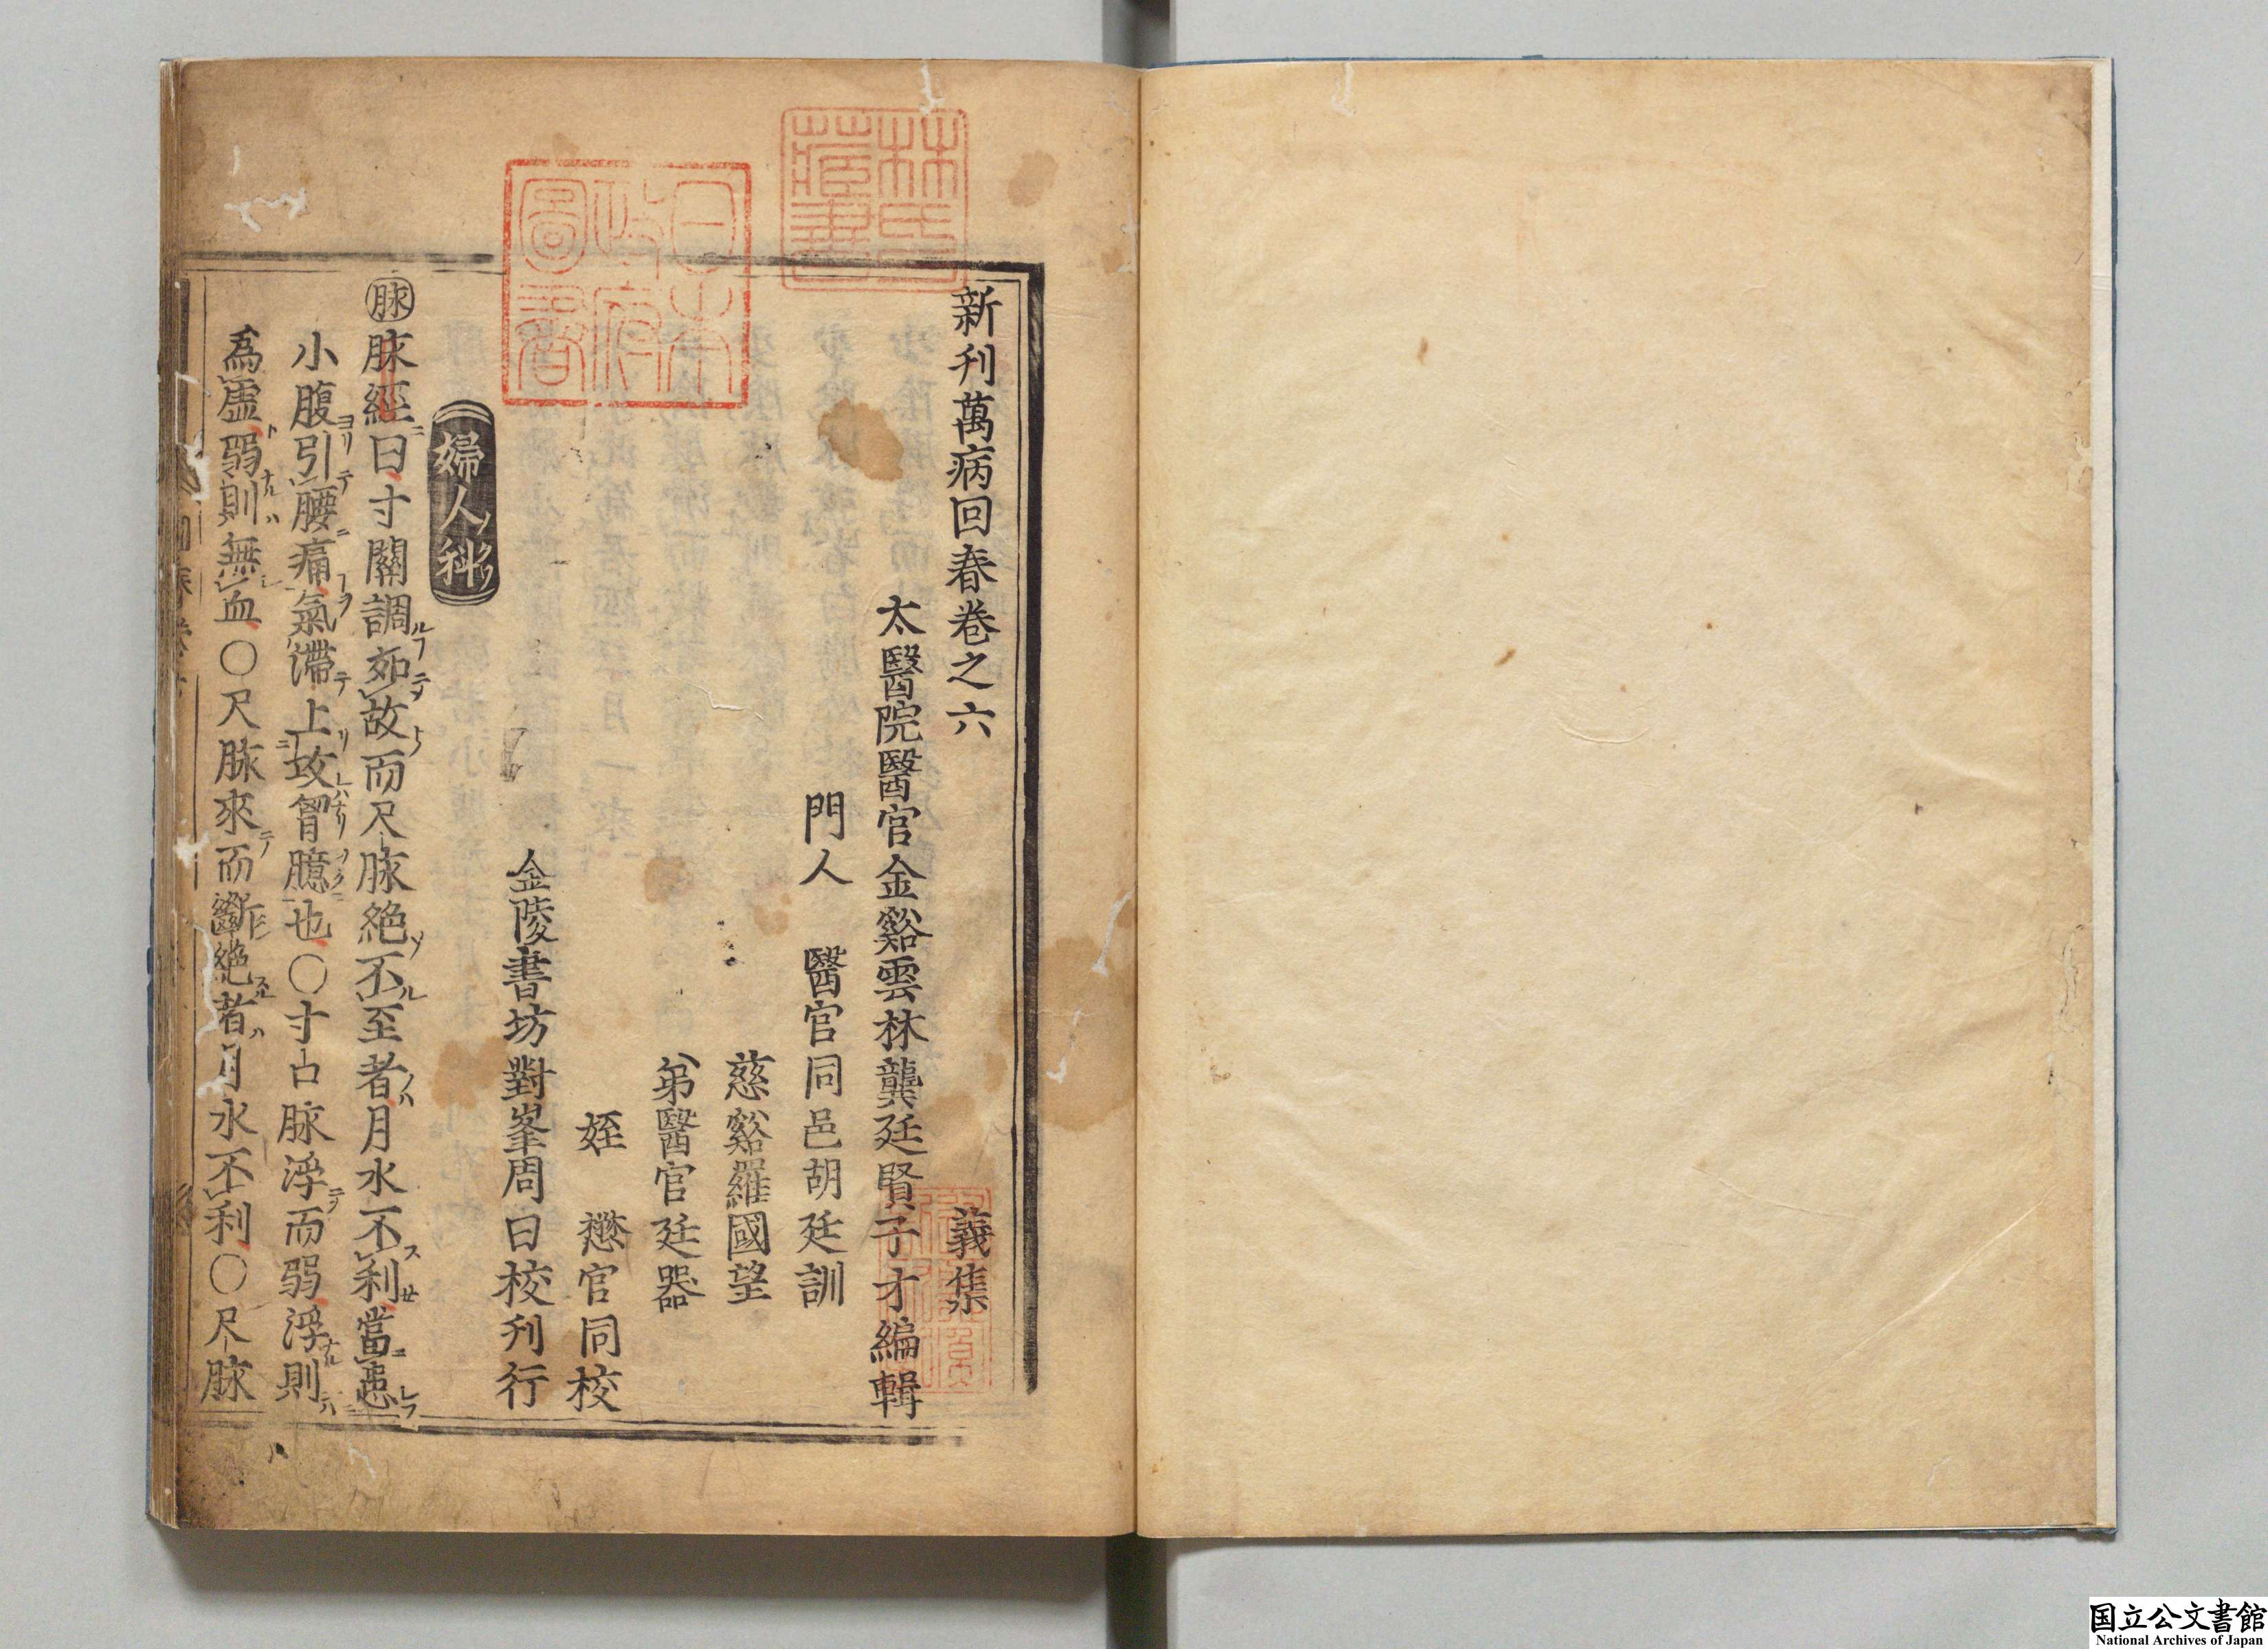 新刊萬病回春卷之六　義集
太醫院醫官金谿雲林龔廷賢子才編輯
門人　醫官同邑胡廷訓
慈谿羅國望
弟醫官廷器
姪　懋官同校
金陵書坊對峯周曰校刋行
婦人科
脉脉經曰寸關調如故而尺脉絕不至者月水不利當患
小腹引腰痛氣滯上攻胷臆也〇寸口脉浮而弱浮則
爲虛弱則無血〇尺脉來而斷絕者月水不利〇尺脉
林氏藏書
日本政府圖書
国立公文書館
National Archives of Japan